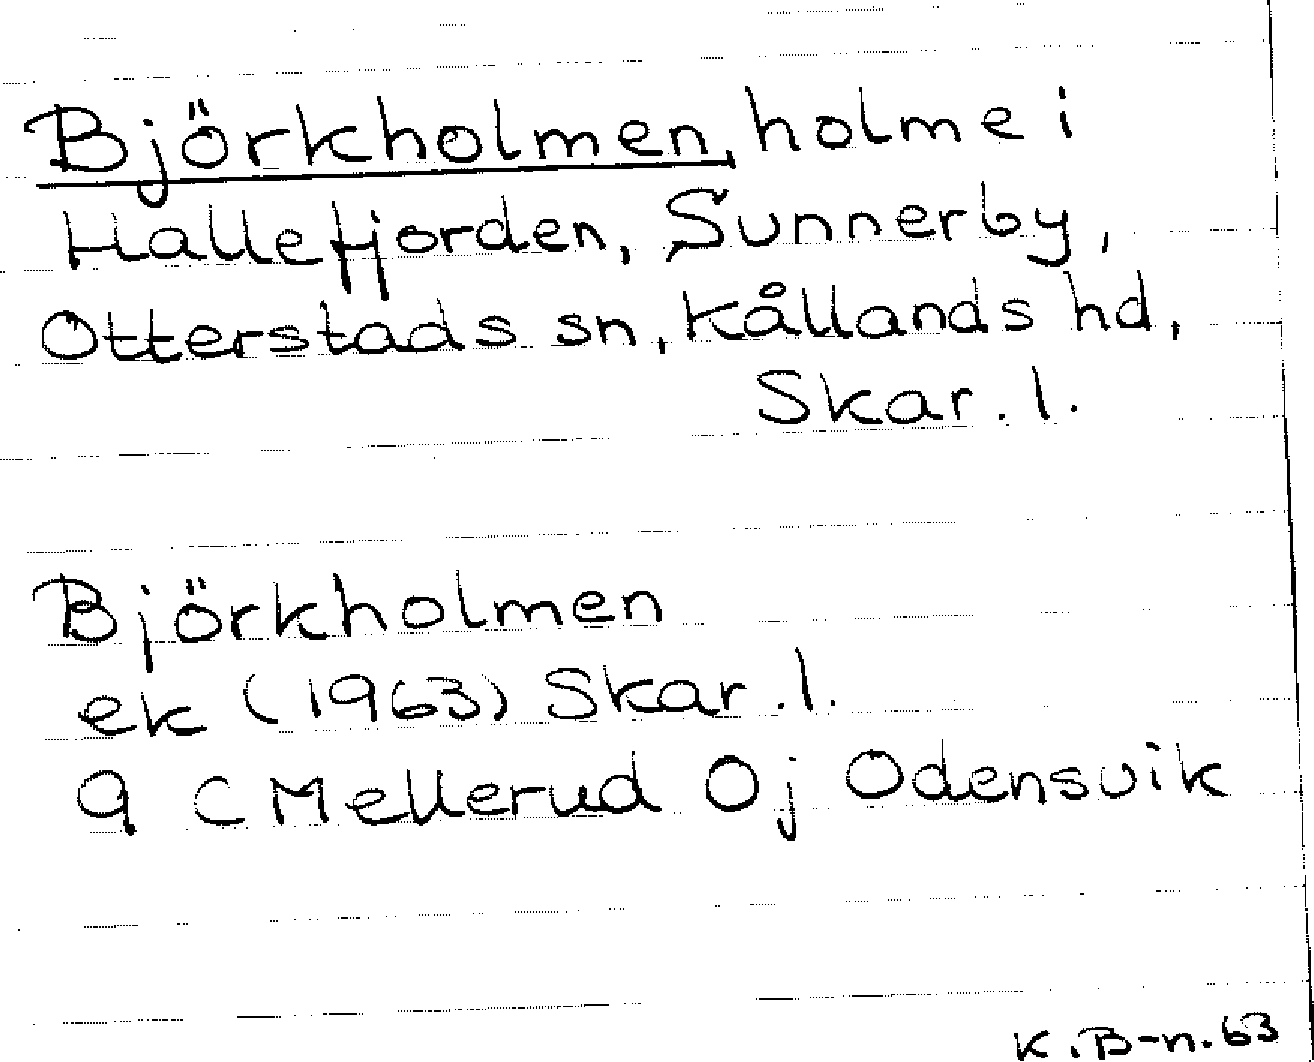 Björkholmen, holme i
Hallefjorden, Sunnerby,
Otterstads sn, Kållands hd,
Skar. l.
Björkholmen
ek (1963) Skar. l.
9 C Mellerud Oj Odensvik
K. B-n. 63